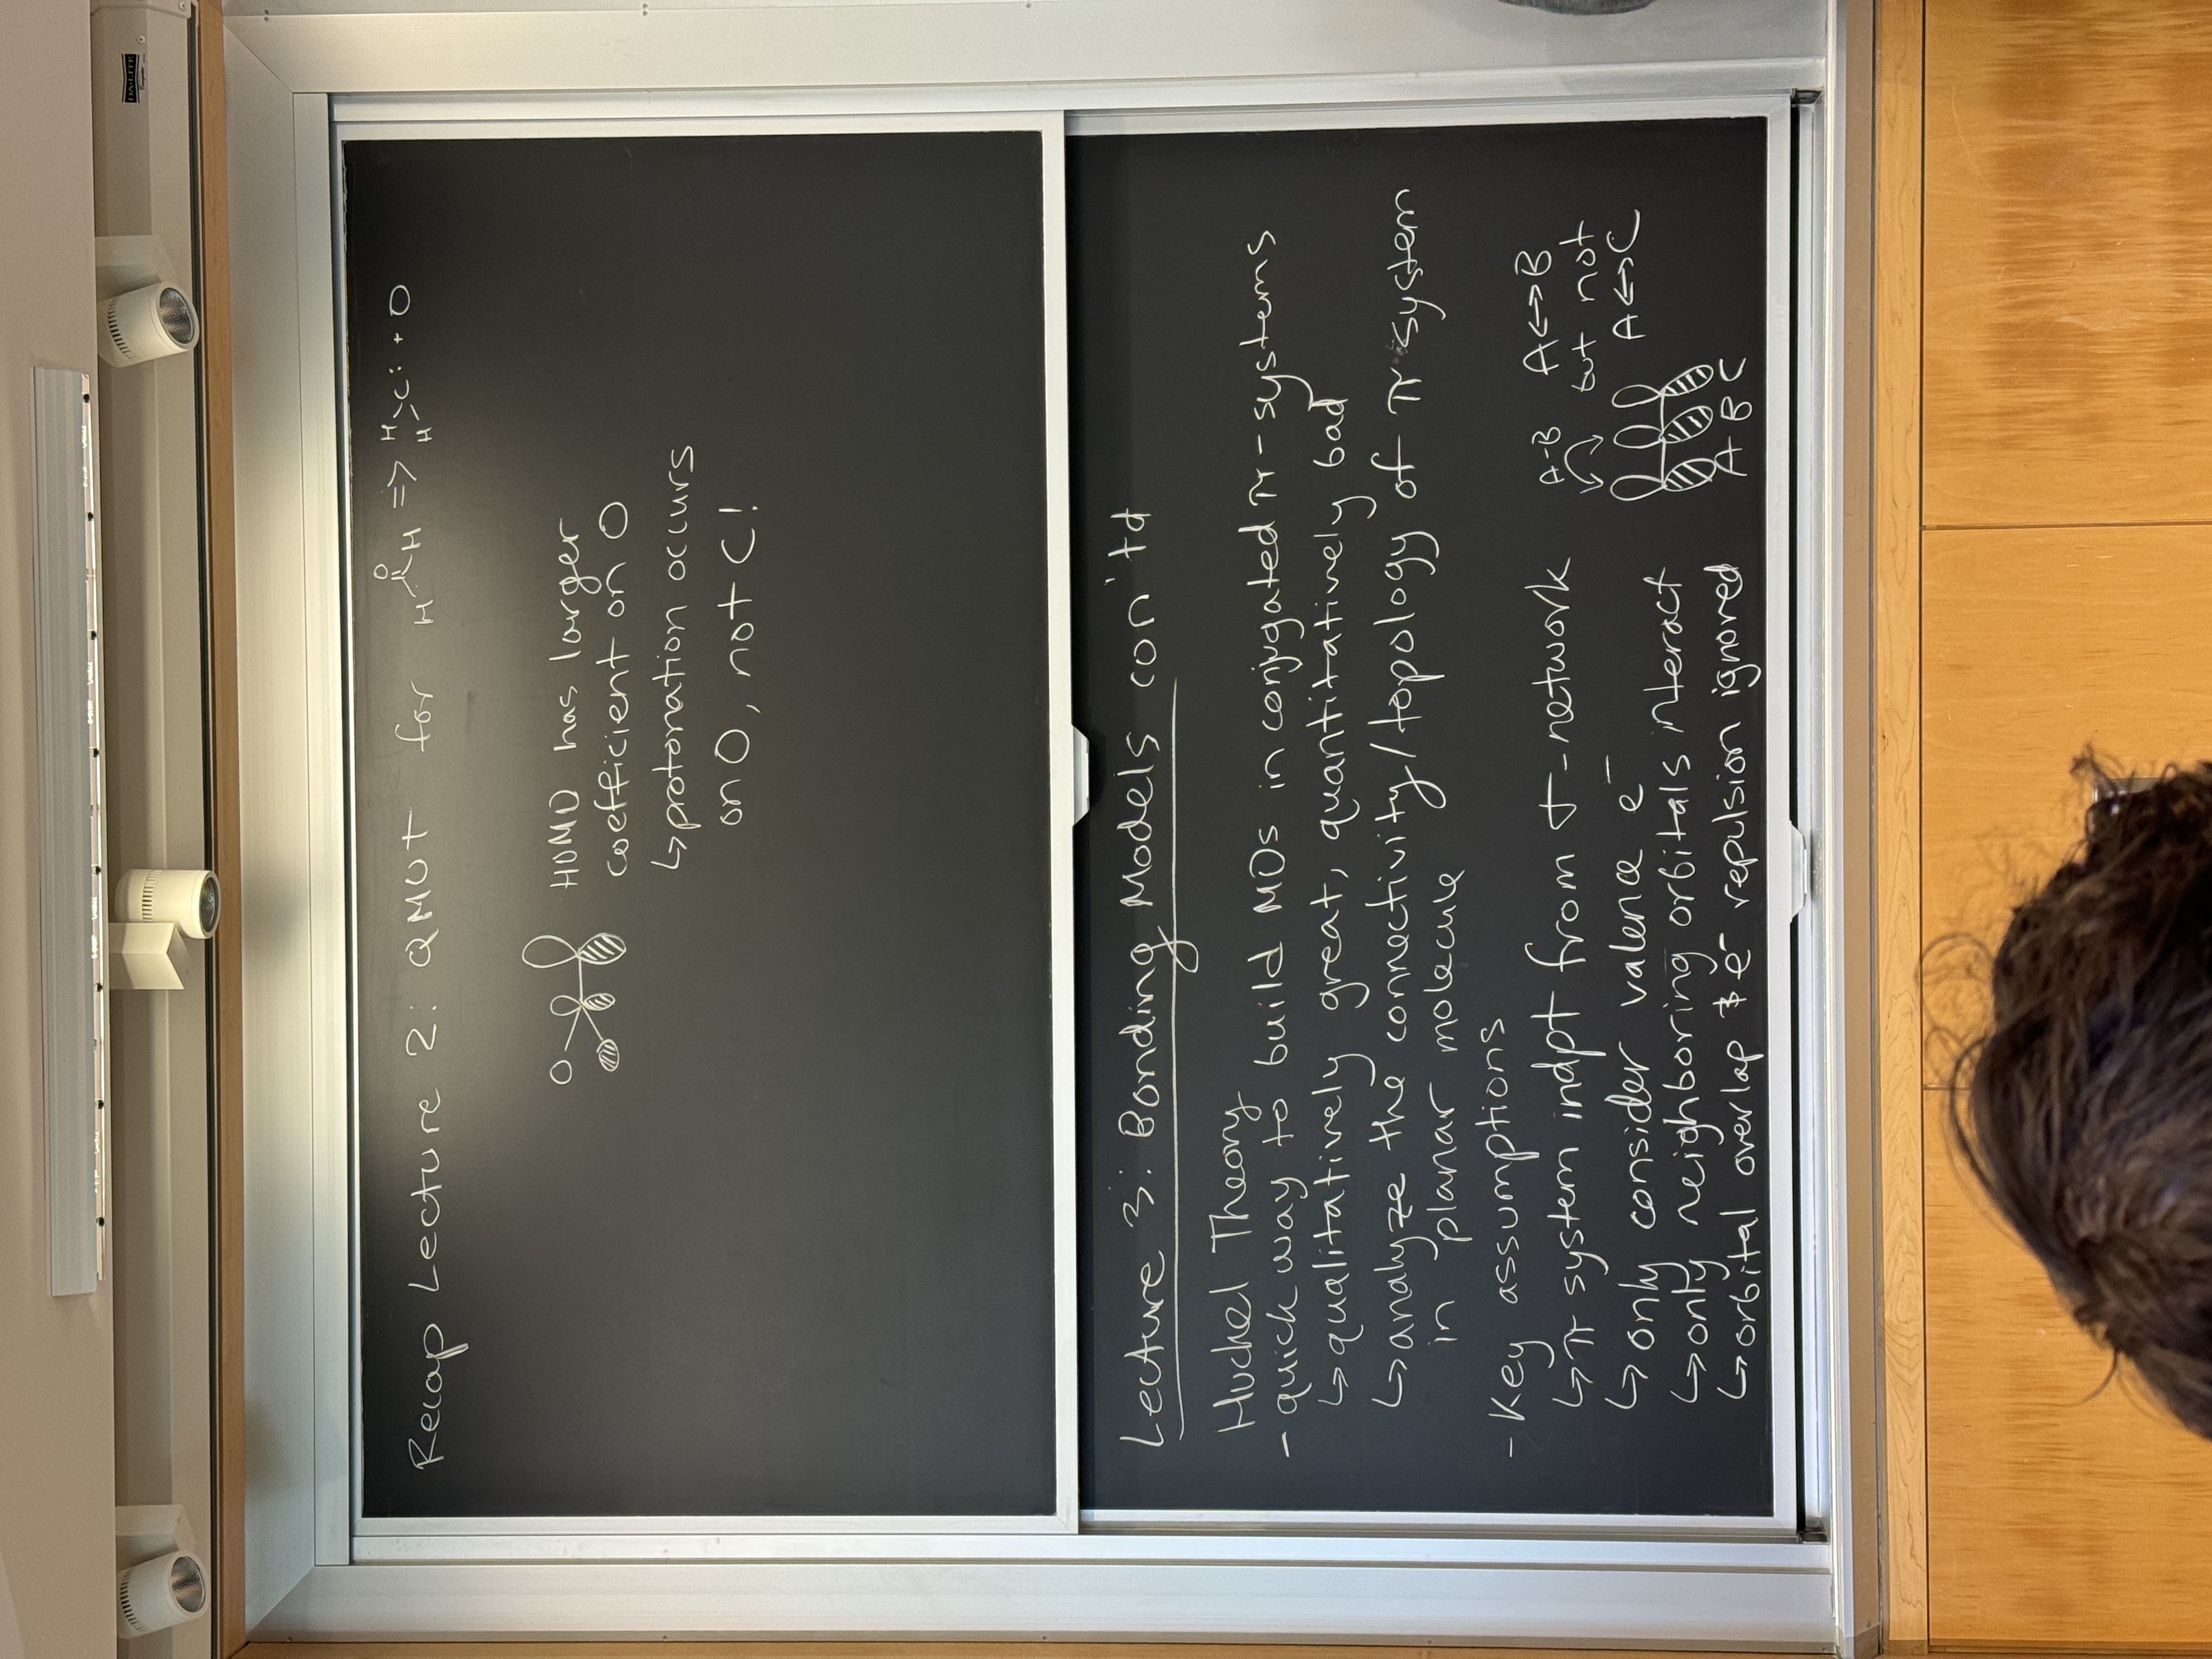 DA-LITE
Recap Lecture 2: QMOT for H O H => H H C: + O
HOMO has larger
coefficient on O
↳ protonation occurs
on O, not C!
Lecture 3: Bonding Models con'td
Huckel Theory
- quick way to build MOs in conjugated π-systems
↳ qualitatively great, quantitatively bad
↳ analyze the connectivity/topology of π system
in planar molecule
- Key assumptions
↳ π system indpt from σ-network
↳ only consider valence e⁻
↳ only neighboring orbitals interact
↳ orbital overlap & e⁻ repulsion ignored
A-B
A↔B
but not
A↔C
A B C